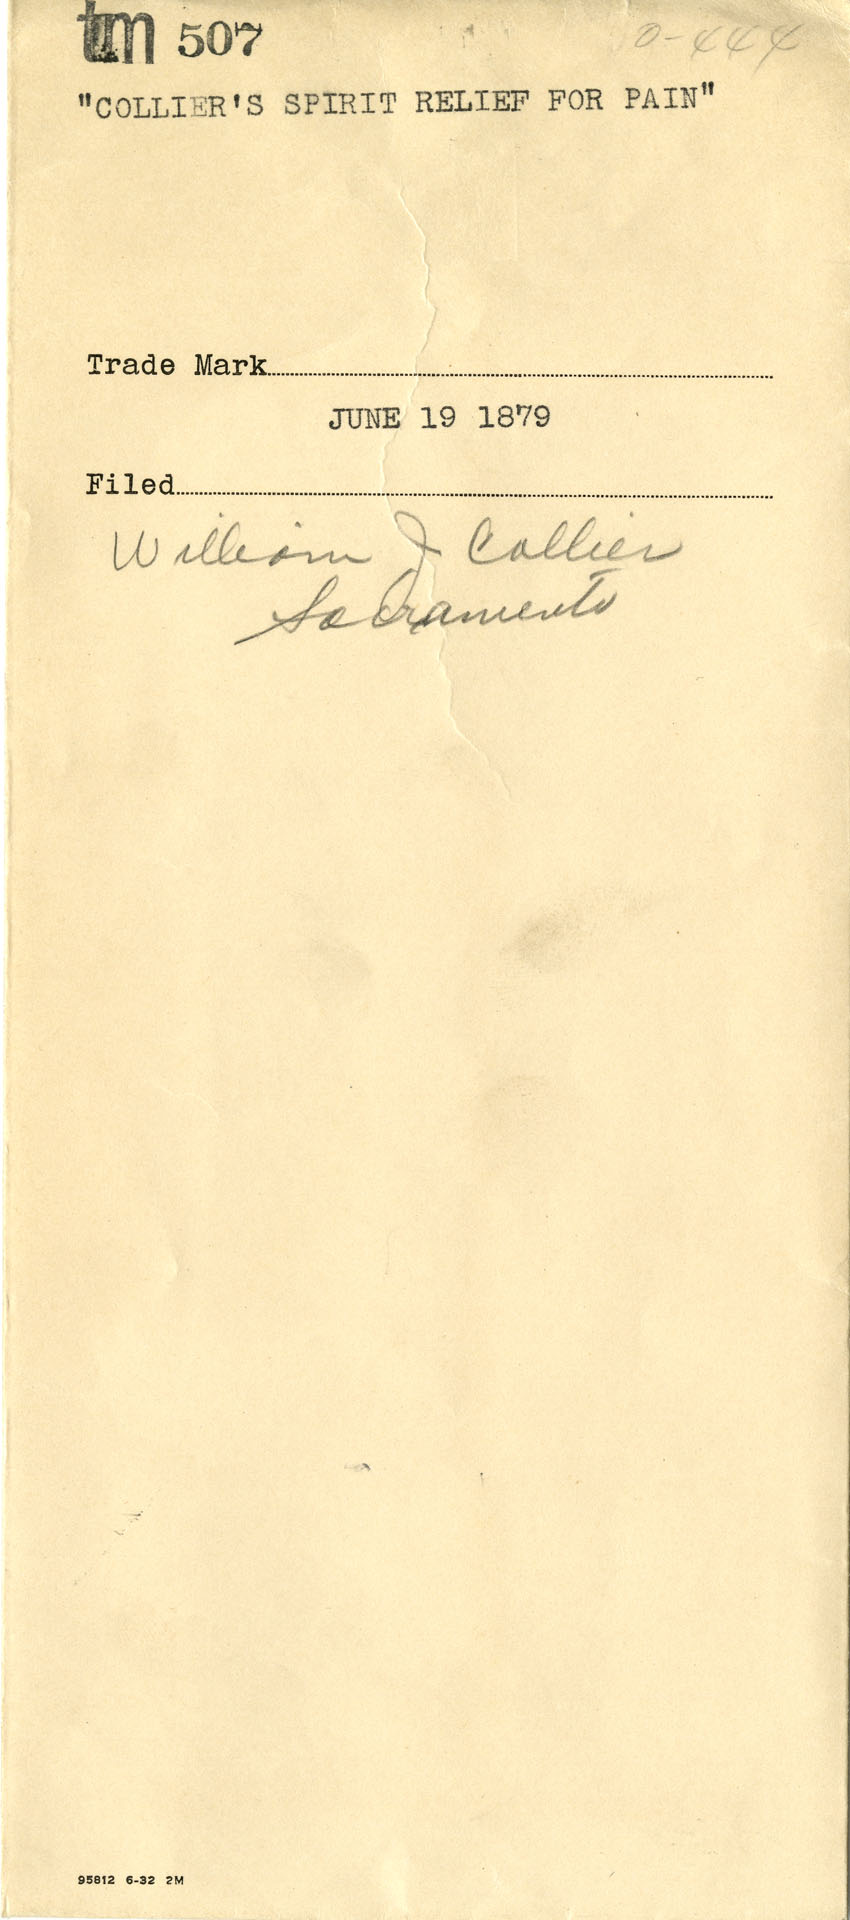 tm 507
0-444
"COLLIER'S SPIRIT RELIEF FOR PAIN"
Trade Mark
JUNE 19 1879
Filed
William J Collier
Sacramento
95812 6-32 2M